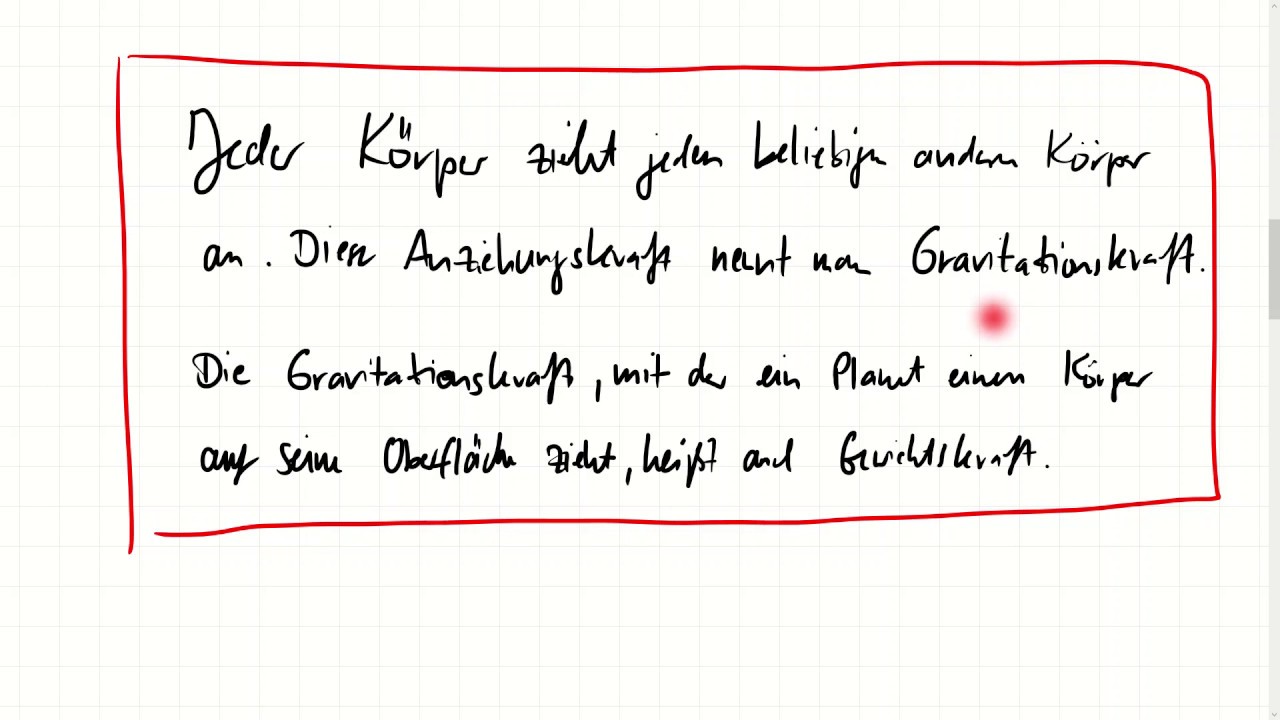 Jeder Körper zieht jeden beliebigen anderen Körper
an. Diese Anziehungskraft nennt man Gravitationskraft.
Die Gravitationskraft, mit der ein Planet einen Körper
auf seine Oberfläche zieht, heißt auch Gewichtskraft.